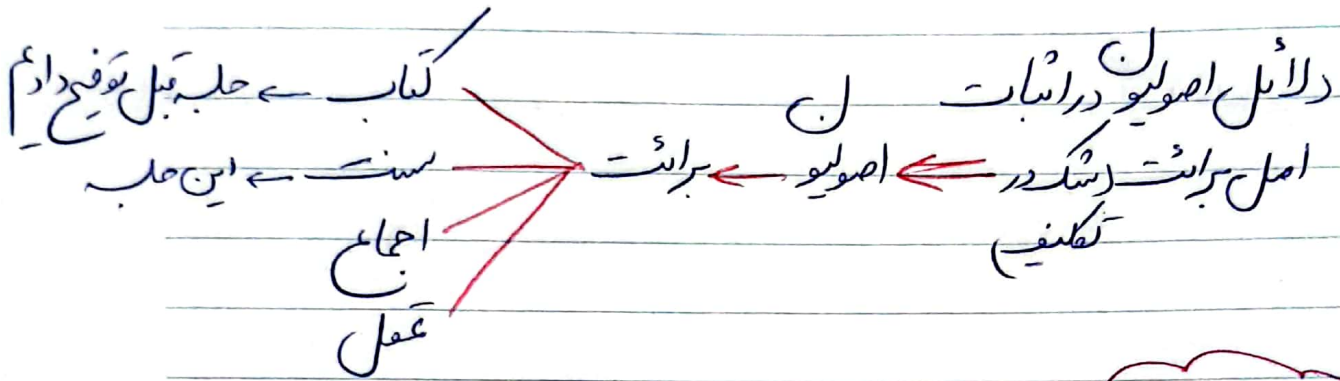 دلائل اصولیون در اثبات
اصل برائت (شک در تکلیف) ← اصولیون ← برائت
کتاب ← جلسه قبل توضیح دادیم
سنت ← این جلسه
اجماع
عقل